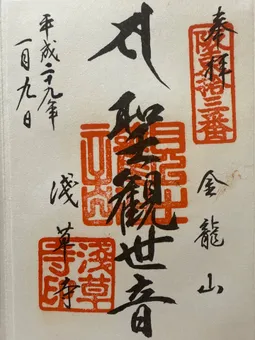 奉拝
坂東拾三番
金龍山
聖観世音
浅草寺
浅草寺印
平成二十九年
一月九日